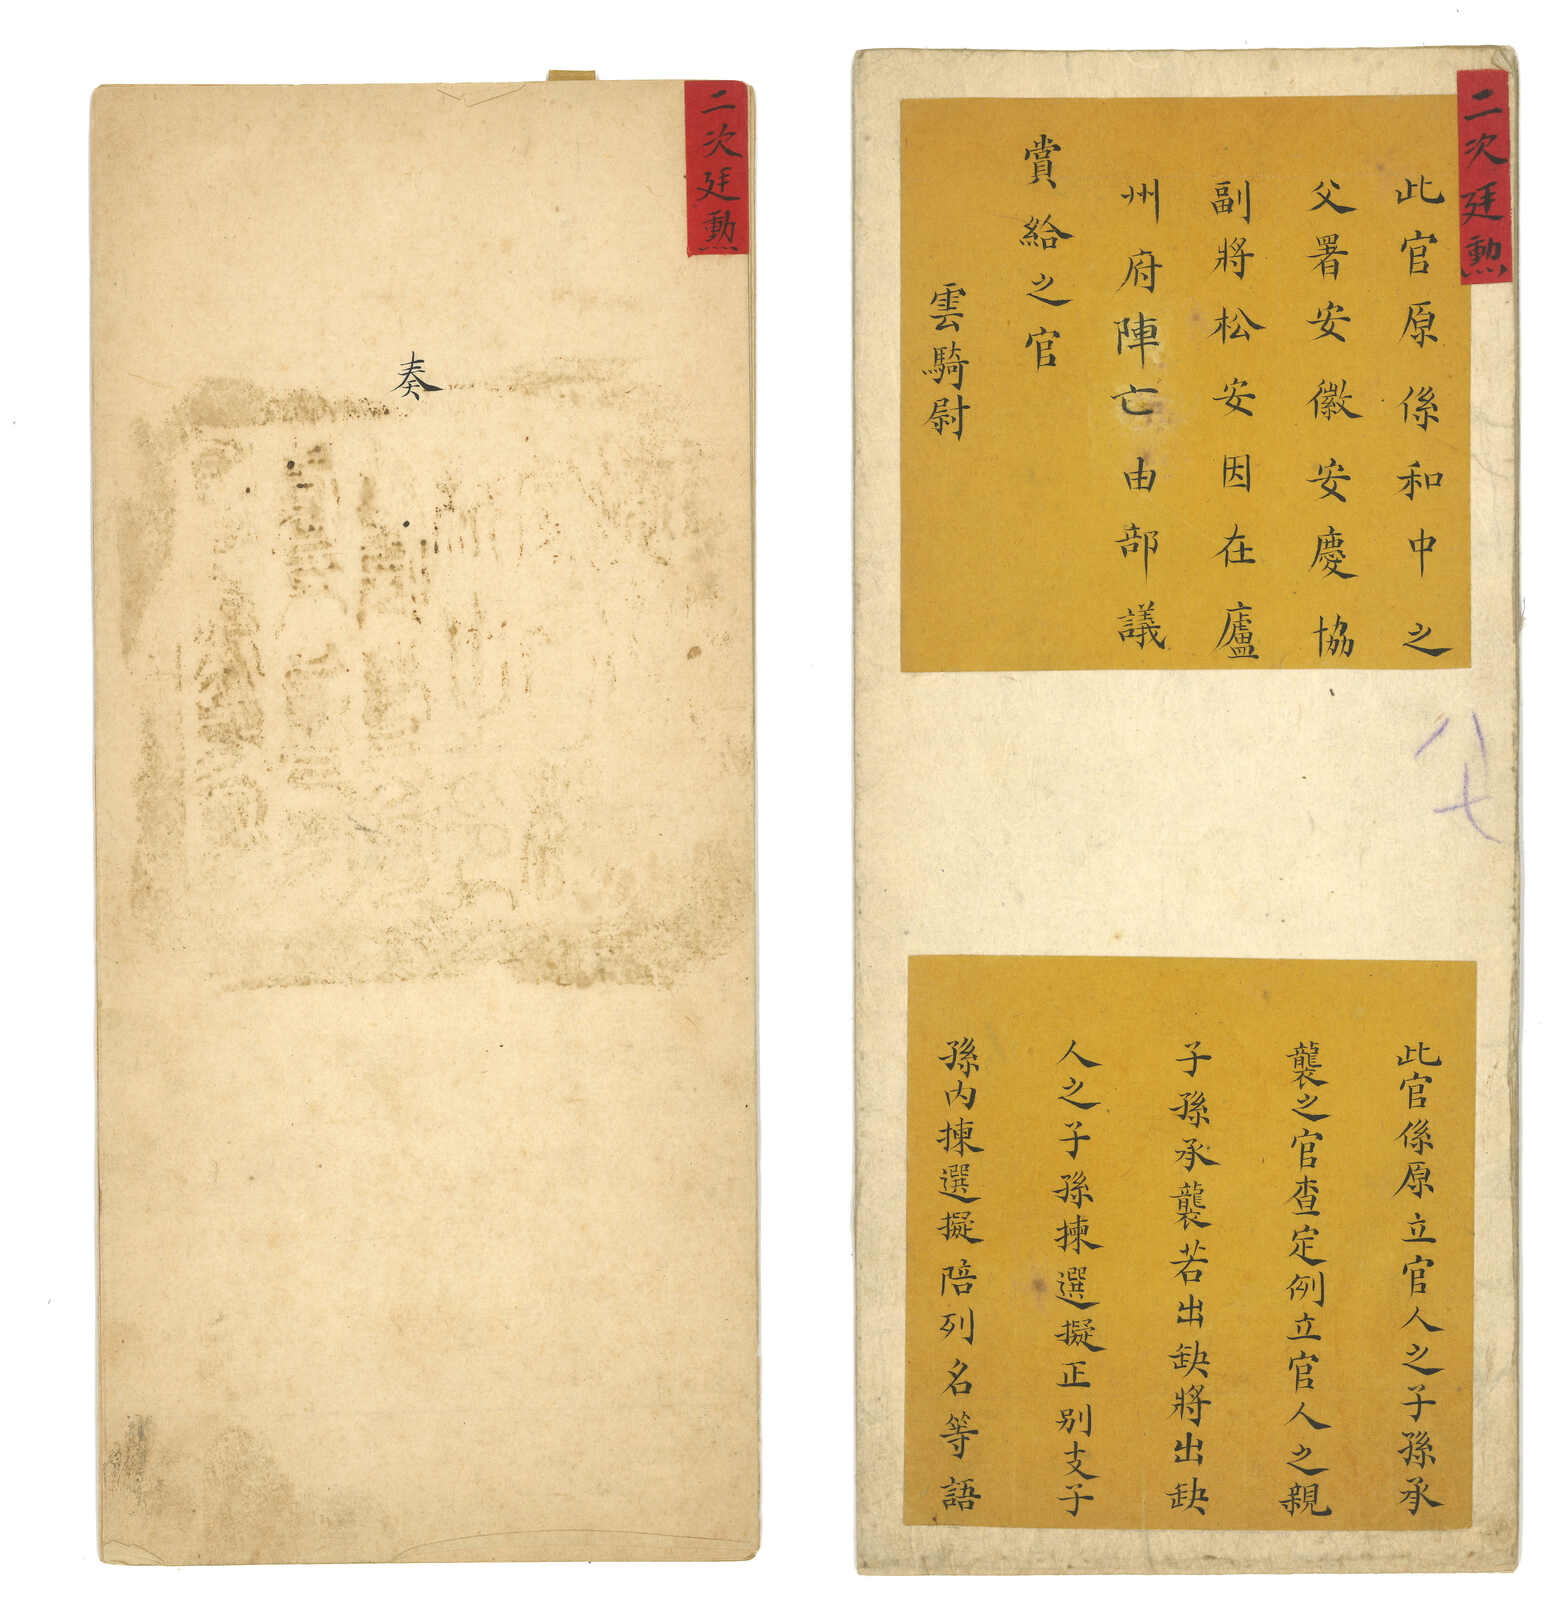 二次廷勳
奏
二次廷勳
此官原係和中之
父署安徽安慶協
副將松安因在廬
州府陣亡由部議
賞給之官
雲騎尉
八七
此官係原立官人之子孫承
襲之官查定例立官人之親
子孫承襲若出缺將出缺
人之子孫揀選擬正別支子
孫內揀選擬陪列名等語